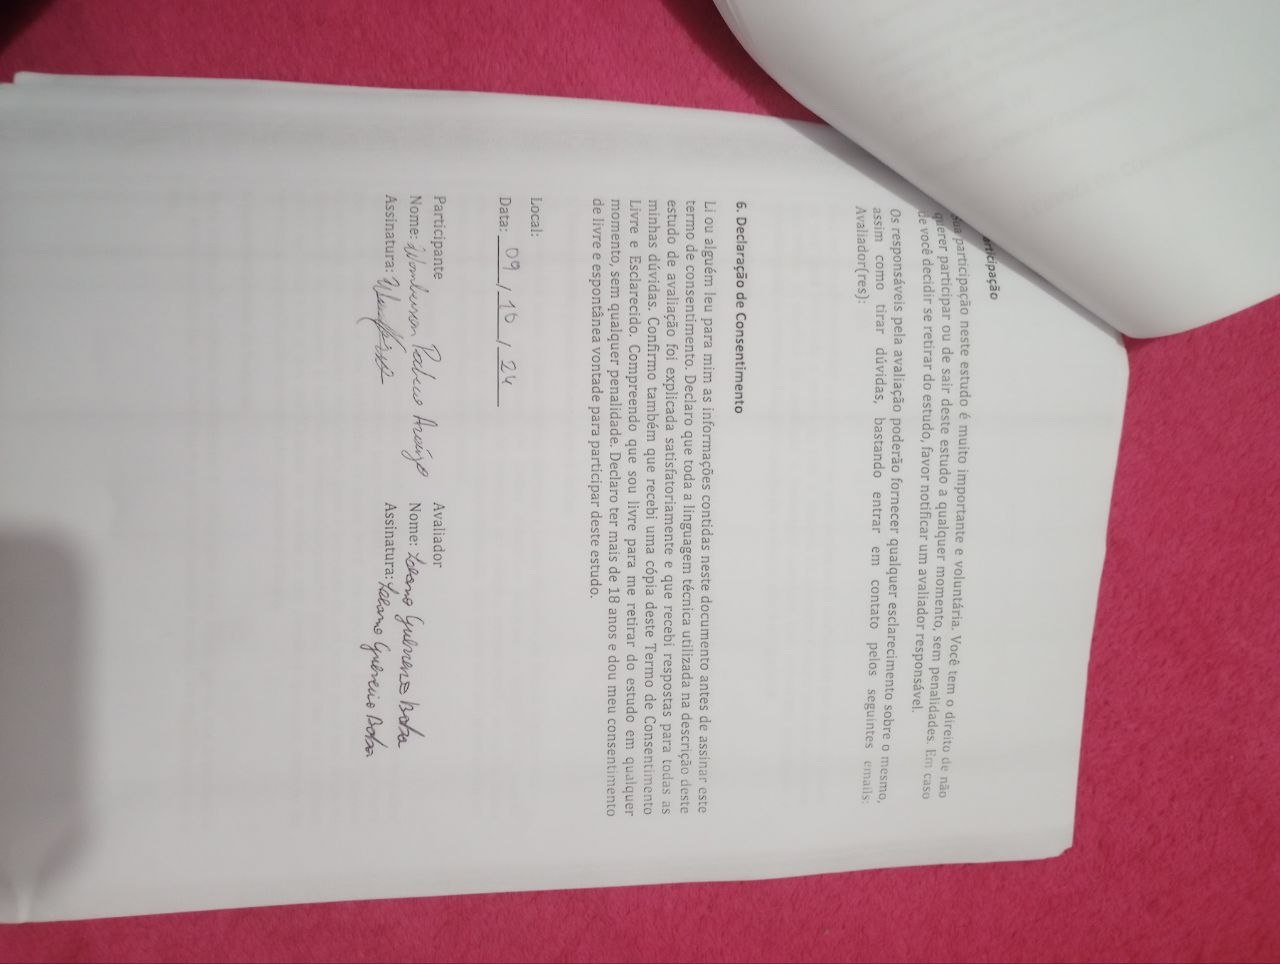 articipação
Sua participação neste estudo é muito importante e voluntária. Você tem o direito de não
querer participar ou de sair deste estudo a qualquer momento, sem penalidades. Em caso
de você decidir se retirar do estudo, favor notificar um avaliador responsável.
Os responsáveis pela avaliação poderão fornecer qualquer esclarecimento sobre o mesmo,
assim como tirar dúvidas, bastando entrar em contato pelos seguintes emails:
Avaliador(res):
6. Declaração de Consentimento
Li ou alguém leu para mim as informações contidas neste documento antes de assinar este
termo de consentimento. Declaro que toda a linguagem técnica utilizada na descrição deste
estudo de avaliação foi explicada satisfatoriamente e que recebi respostas para todas as
minhas dúvidas. Confirmo também que recebi uma cópia deste Termo de Consentimento
Livre e Esclarecido. Compreendo que sou livre para me retirar do estudo em qualquer
momento, sem qualquer penalidade. Declaro ter mais de 18 anos e dou meu consentimento
de livre e espontânea vontade para participar deste estudo.
Local:
Data: 09 / 10 / 24
Participante Avaliador
Nome: Araújo Nome: Guerreiro
Assinatura: Assinatura: Guerreiro